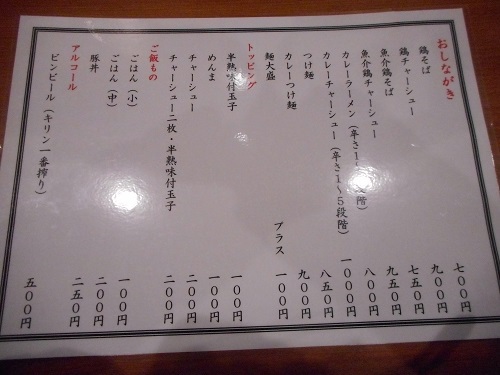 おしながき
鶏そば 七〇〇円
鶏チャーシュー 九〇〇円
魚介鶏そば 七五〇円
魚介鶏チャーシュー 九五〇円
カレーラーメン（辛さ１〜５段階） 八〇〇円
カレーチャーシュー（辛さ１〜５段階） 一〇〇〇円
つけ麺 八五〇円
カレーつけ麺 九〇〇円
麺大盛 プラス 一〇〇円
トッピング
半熟味付玉子 一〇〇円
めんま 一〇〇円
チャーシュー 二〇〇円
チャーシュー二枚・半熟味付玉子 二〇〇円
ご飯もの
ごはん（小） 一〇〇円
ごはん（中） 二〇〇円
豚丼 二五〇円
アルコール
ビンビール（キリン一番搾り） 五〇〇円